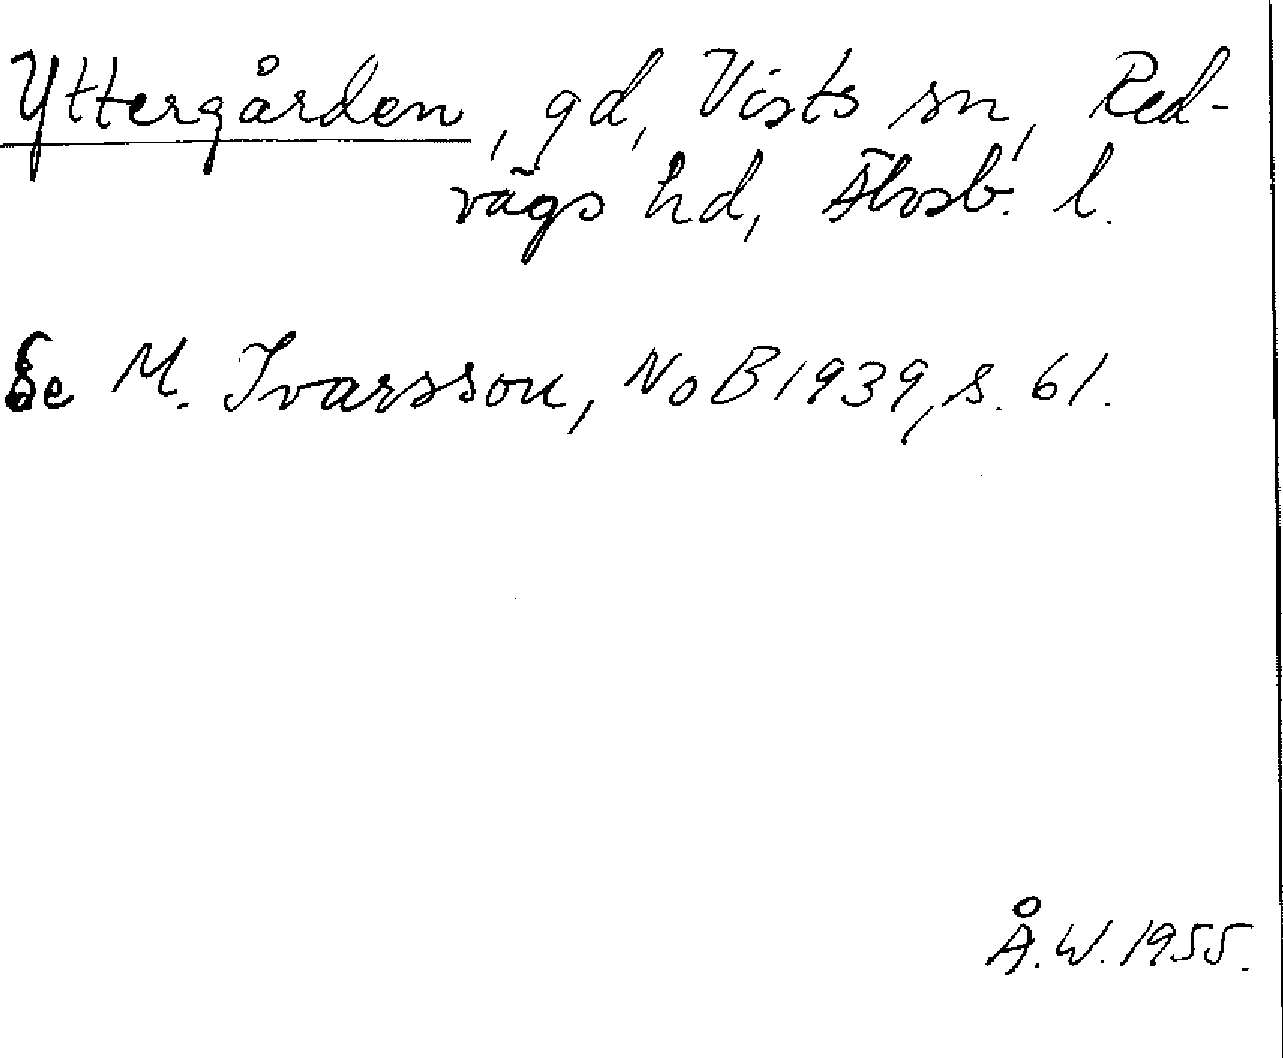 Yttergården, gd, Vists sn, Red-
vägs hd, Älvsb. l.
Se M. Ivarsson, NoB 1939, s. 61.
Å. W. 1955.